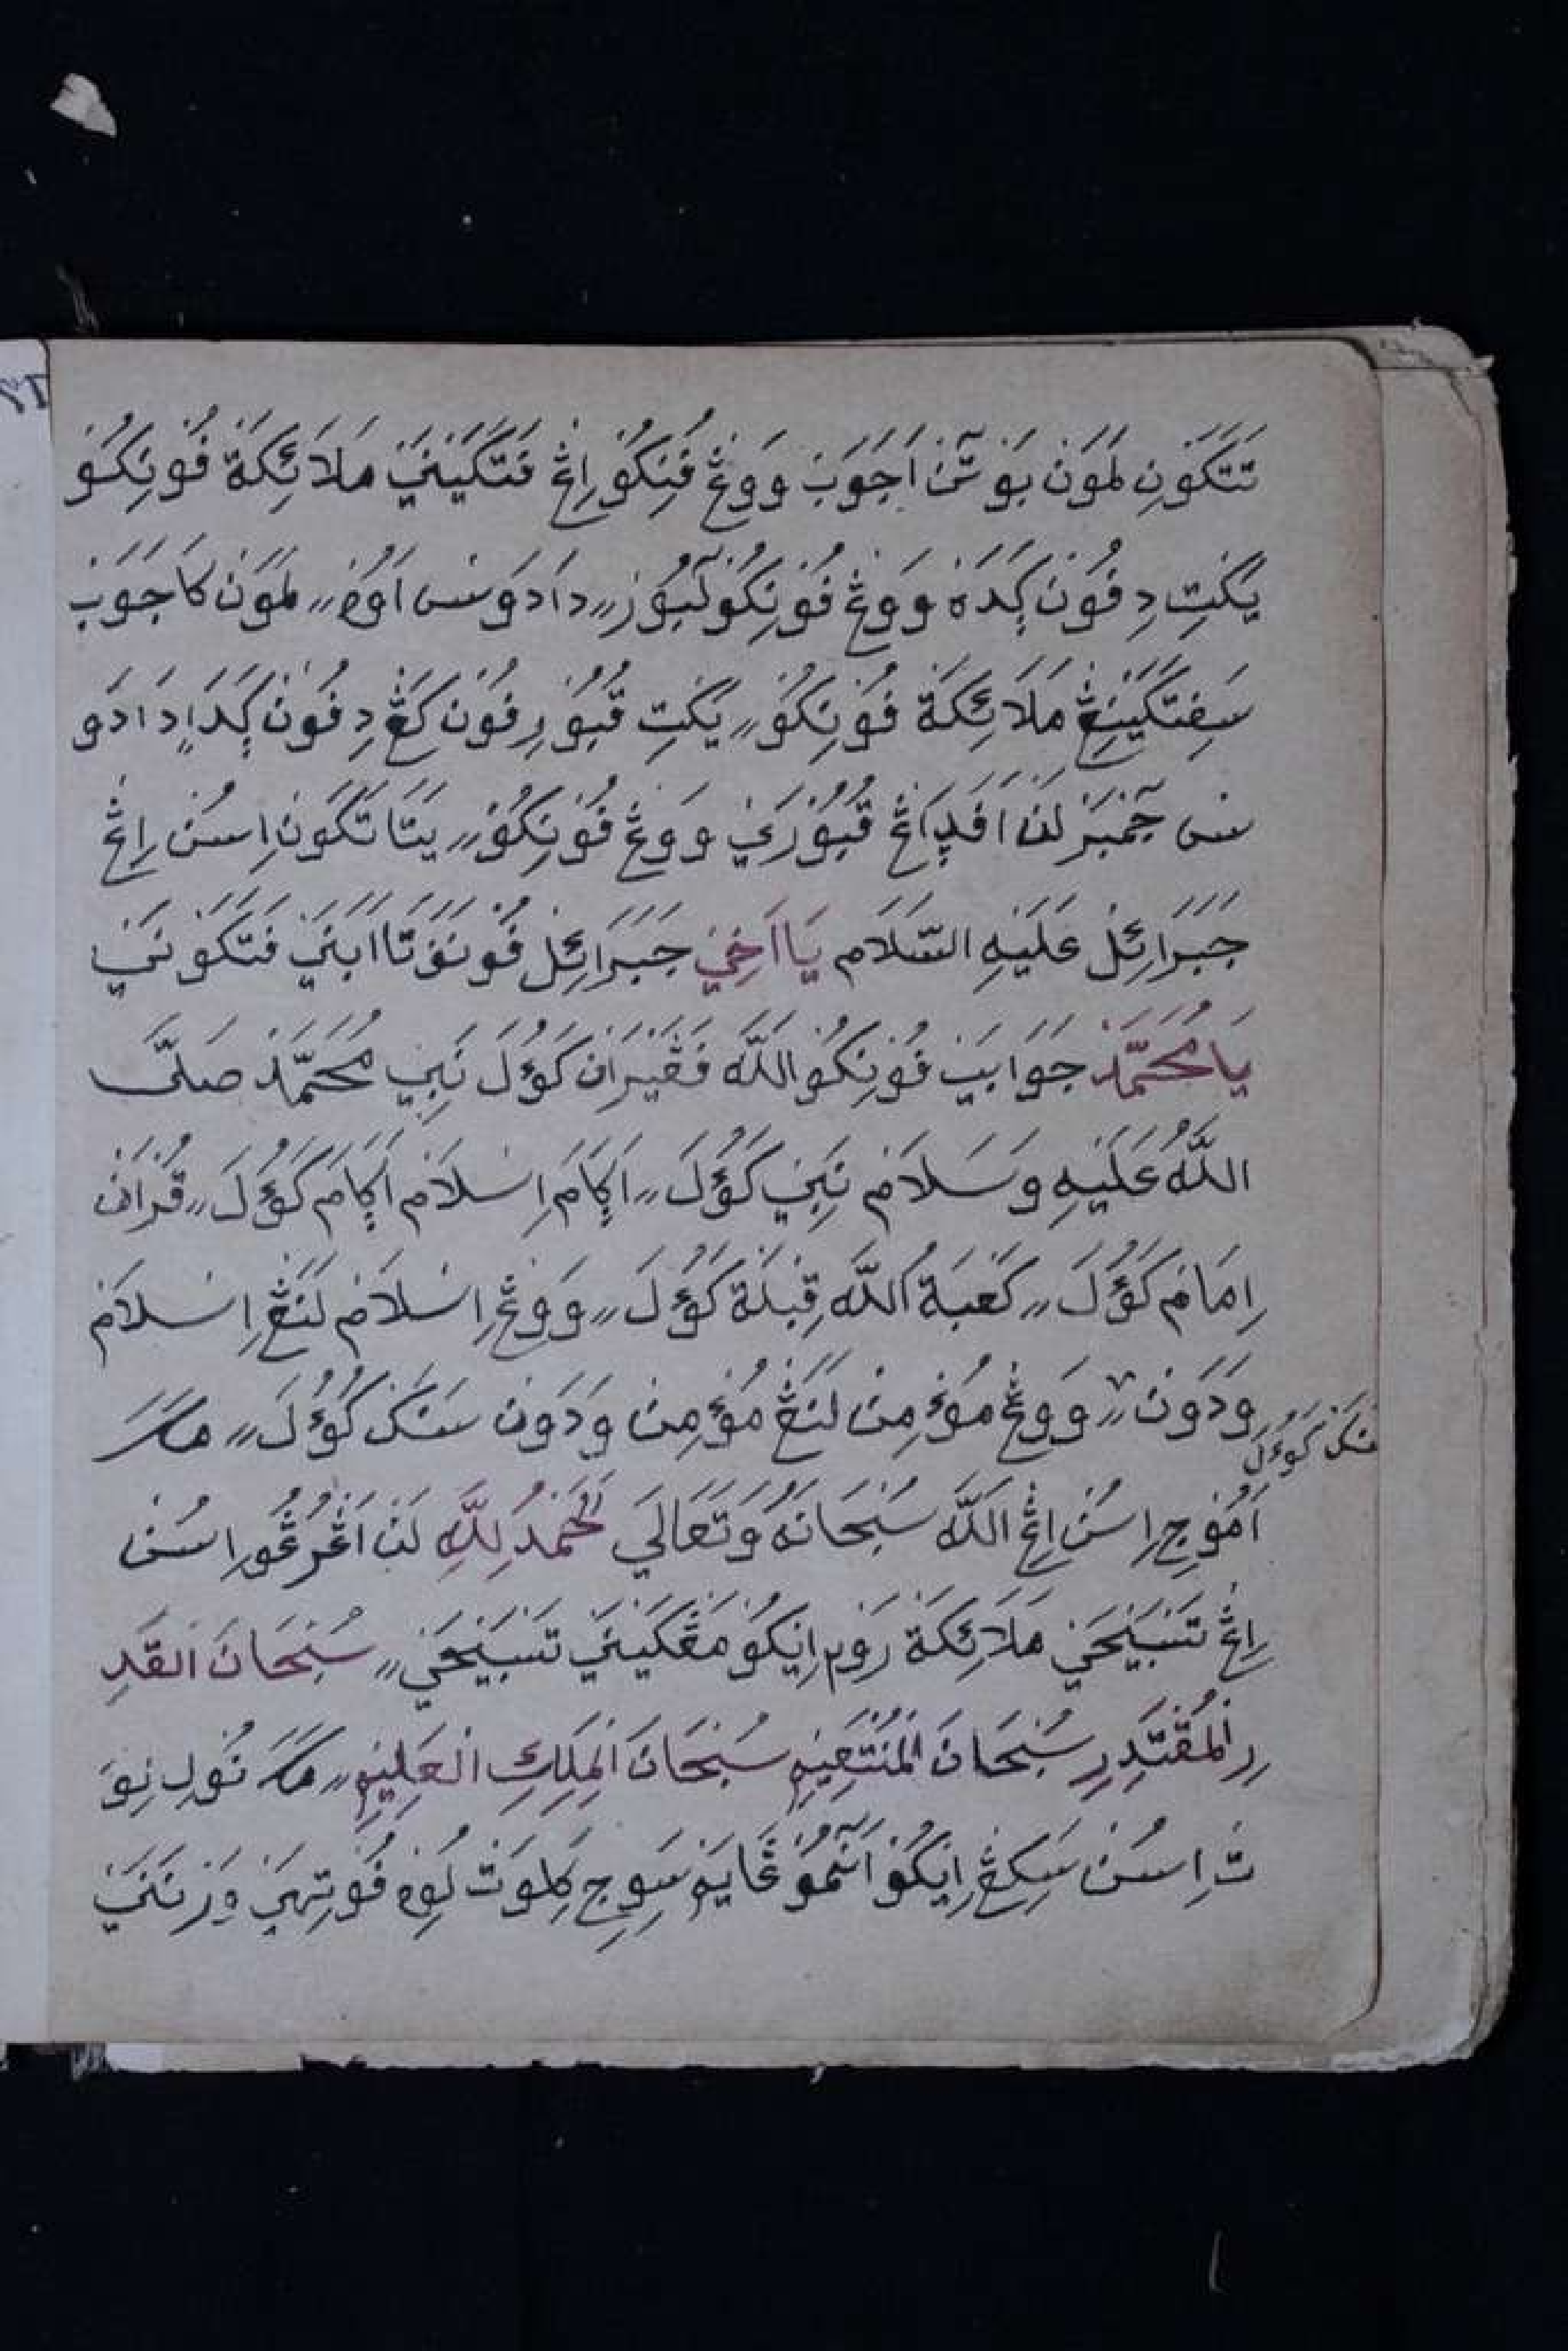 تَتَكَوَنِ لَمَوَن بَوْتٓن اَجَوَبْ وَوڠْ فُنِكُوْ اِڠْ فَتَكَيْنَيْ مَلَائِكَةْ فُوْنِكُوْ
يَكْتِ دِفُوْن كٜدَهْ وَوڠْ فُوْنِكُوْ لٓبُوْرْ دَادَوْسْ اَوُوْ لَمَوَنْ كَاجَوَبْ
سَفَتَكَيْنِڠْ مَلَائِكَةْ فُوْنِكُوْ يَكْتِ قُبُوْرِفُوْن كَڠْ دِفُوْن كٜدَاِ دَادَو
سْ جٓمْبَرْ لَنْ اَفَدٜاڠْ قُبُوْرَيْ وَوڠْ فُوْنِكُوْ يَتَا تَكَوَنْ اِسُنْ اِڠْ
جَبَرَائِلْ عَلَيْهِ السَّلَامْ يَا اَخِيْ جَبَرَائِلْ فُوْنَفَتَا ابَنَيْ فَتَكَوْنَيْ
يَا مُحَمَّدْ جَوَابَيْ فُوْنِكُوْ اللّٰه فَڠَيْرَانْ كَوُلَ نَبِيْ مُحَمَّدْ صَلَّى
اللّٰهُ عَلَيْهِ وَسَلَامْ نَبِيْ كَوُلَ اَݢَامَ اِسْلَامْ اَݢَامَ كَوُلَ قُرْاَنْ
اِمَامْ كَوُلَ كَعْبَةُ اللّٰه قِبْلَةْ كَوُلَ وَوڠْ اِسْلَامْ لَنَڠْ اِسْلَامْ
وَدَوَنْ وَوڠْ مُؤْمِنْ لَنَڠْ مُؤْمِنْ وَدَوَنْ سَنَكْ كَوُلَ مَكَ
سَنَكْ كَوُلَ
اَمُوْجِ اِسُنْ اِڠْ اَللّٰهْ سُبْحَانَهُ وَتَعَالَى الْحَمْدُ لِلّٰهِ لَنْ اَڠْرُڠُو اِسُنْ
اِڠْ تَسْبَيْحَيْ مَلَائِكَةْ رَوْهِ اِيْكُوْ مَڠْكَيْنَيْ تَسْبَيْحَيْ سُبْحَانَ الْقَدِ
رِ الْمُقْتَدِرِ سُبْحَانَ الْمُنْتَعِيْمِ سُبْحَانَ الْمَلِكِ الْعَلِيْمِ مَكَ نُوْلِ نِوَ
تْ اِسُنْ سَكِڠْ اِيْكُوْ اَنٓمُوْ ڠَايَمْ سَوِجِ كَلَوَتْ لُوِهْ فُوْتِهَيْ وَرْنَنَيْ